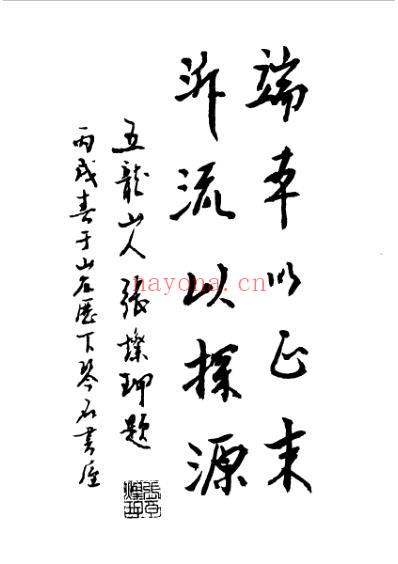 端本以正末
泝流以探源
五龍山人張燦玾題
丙戌春于山左歷下琴石書屋
nayona.cn